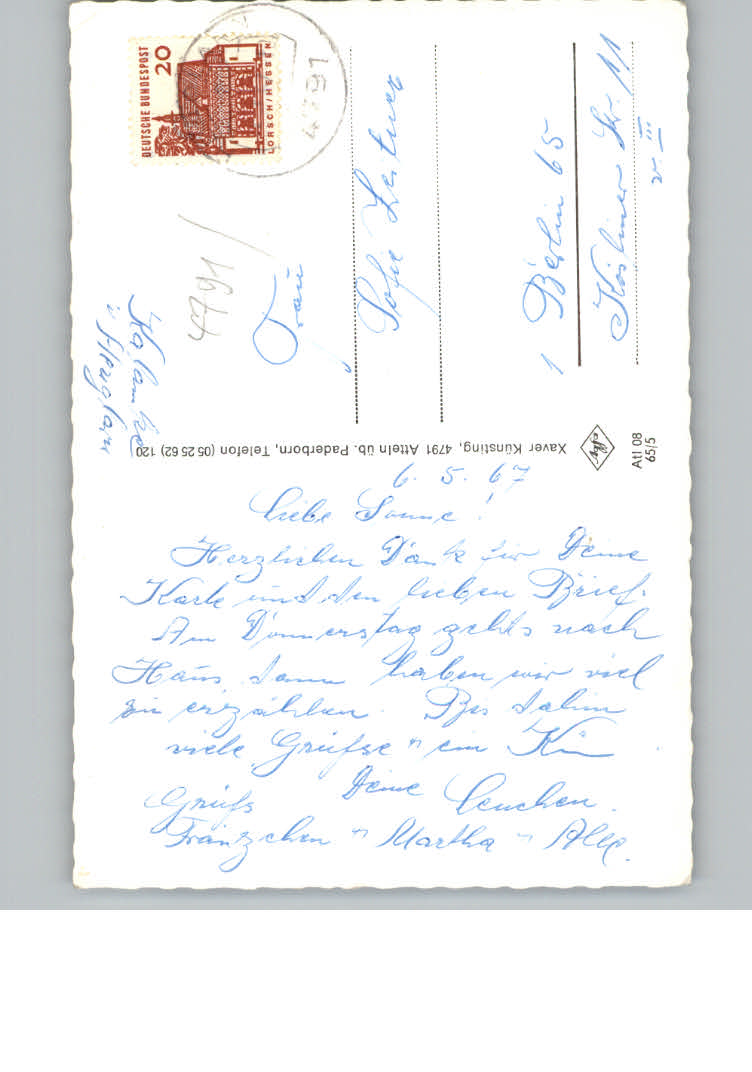 DEUTSCHE BUNDESPOST
20
LORSCH/HESSEN
4791
4791
Frau
Sofie
1 Berlin 65
Kösliner Str. 11
v. III
Xaver Künsting, 4791 Atteln üb. Paderborn, Telefon (05 25 62) 120
Atl 08
65/5
6. 5. 67
Liebe Sonne!
Herzlichen Dank für Deine
Karte und den lieben Brief.
Am Donnerstag gehts nach
Haus dann haben wir viel
zu erzählen. Bis dahin
viele Grüße u ein Kü
Deine Lenchen.
Grüß
Fränzchen u Martha u Alle.